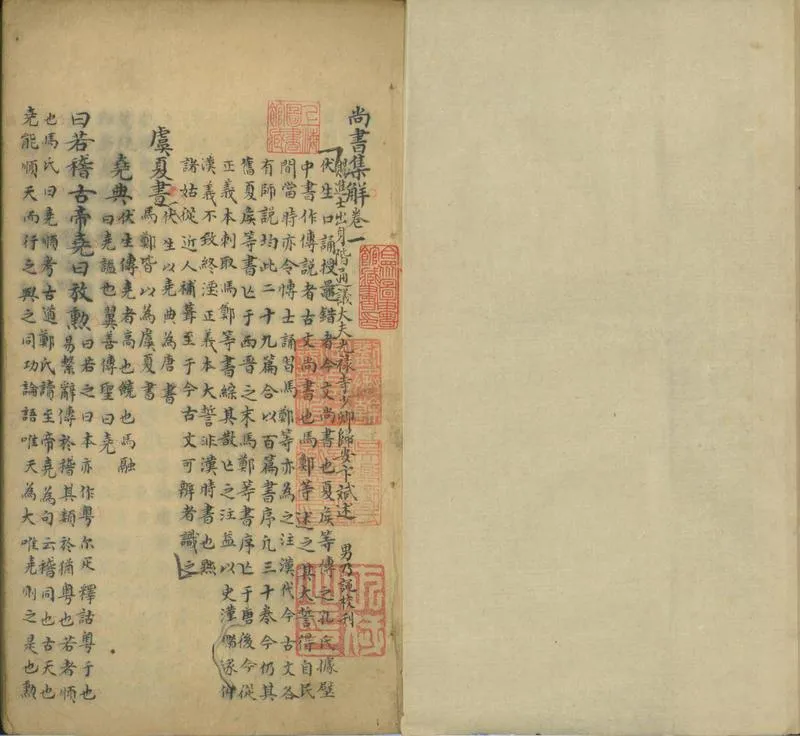 尚書集解卷一
賜進士出身階通議大夫光祿寺少卿歸安卞斌述 男乃譝校刊
伏生口誦授鼂錯者今文尚書也夏侯等傳之孔氏據壁
中書作傳說者古文尚書也馬鄭等述之其大誓得自民
間當時亦令博士誦習馬鄭等亦為之注漢代今古文各
有師說均此二十九篇合以百篇書序凡三十卷今仍其
舊夏侯等書亡于西晉之末馬鄭等書序亡于唐後今從
正義本刺取馬鄭等書綜其散亡之注益以史
漢義不致終淫正義本大誓非漢時書也
諸姑從近人補葺至于今古文可辨者識之
虞夏書 伏生以堯典為唐書
馬鄭皆以為虞夏書
堯典 伏生傳堯者高也饒也馬融
曰堯諡也翼善傳聖曰堯
曰若稽古帝堯曰放勳 曰若之曰本亦作粵尔疋釋詁粵于也
易繫辭傳於稽其類於猶粵也若者順
也馬氏曰堯順考古道鄭氏讀至帝堯為句云稽同也古天也
堯能順天而行之與之同功論語唯天為大唯堯則之是也勳